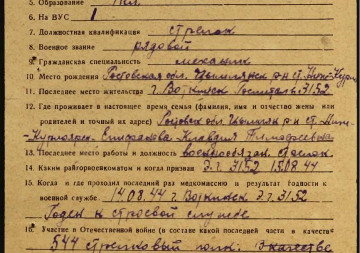 5. Образование 7 кл.
6. На ВУС 1
7. Должностная квалификация стрелок
8. Военное звание рядовой
9. Гражданская специальность механик
10. Место рождения Ростовская обл. Цымлянск р-н ст. Нижн-Курм
11. Последнее место жительства г. Воткинск Госпиталь 3152
12. Где проживает в настоящее время семья (фамилия, имя и отчество жены или
родителей и точный их адрес) Ростовск обл. Цымлянск р-н ст. Нижн-
-Курмоярск. Клавдия Тимофеевна
13. Последнее место работы и должность военнообязан. стрелок
14. Каким райгорвоенкоматом и когда призван Э.Г. 3152 15.08.44
15. Когда и где проходил последний раз медкомиссию и результат годности к
военной службе. 14.08.44 г. Воткинск Э.Г. 3152
Годен к строевой службе
16. Участие в Отечественной войне (в составе какой последней части и качеств
544 стрелковый полк. в качестве